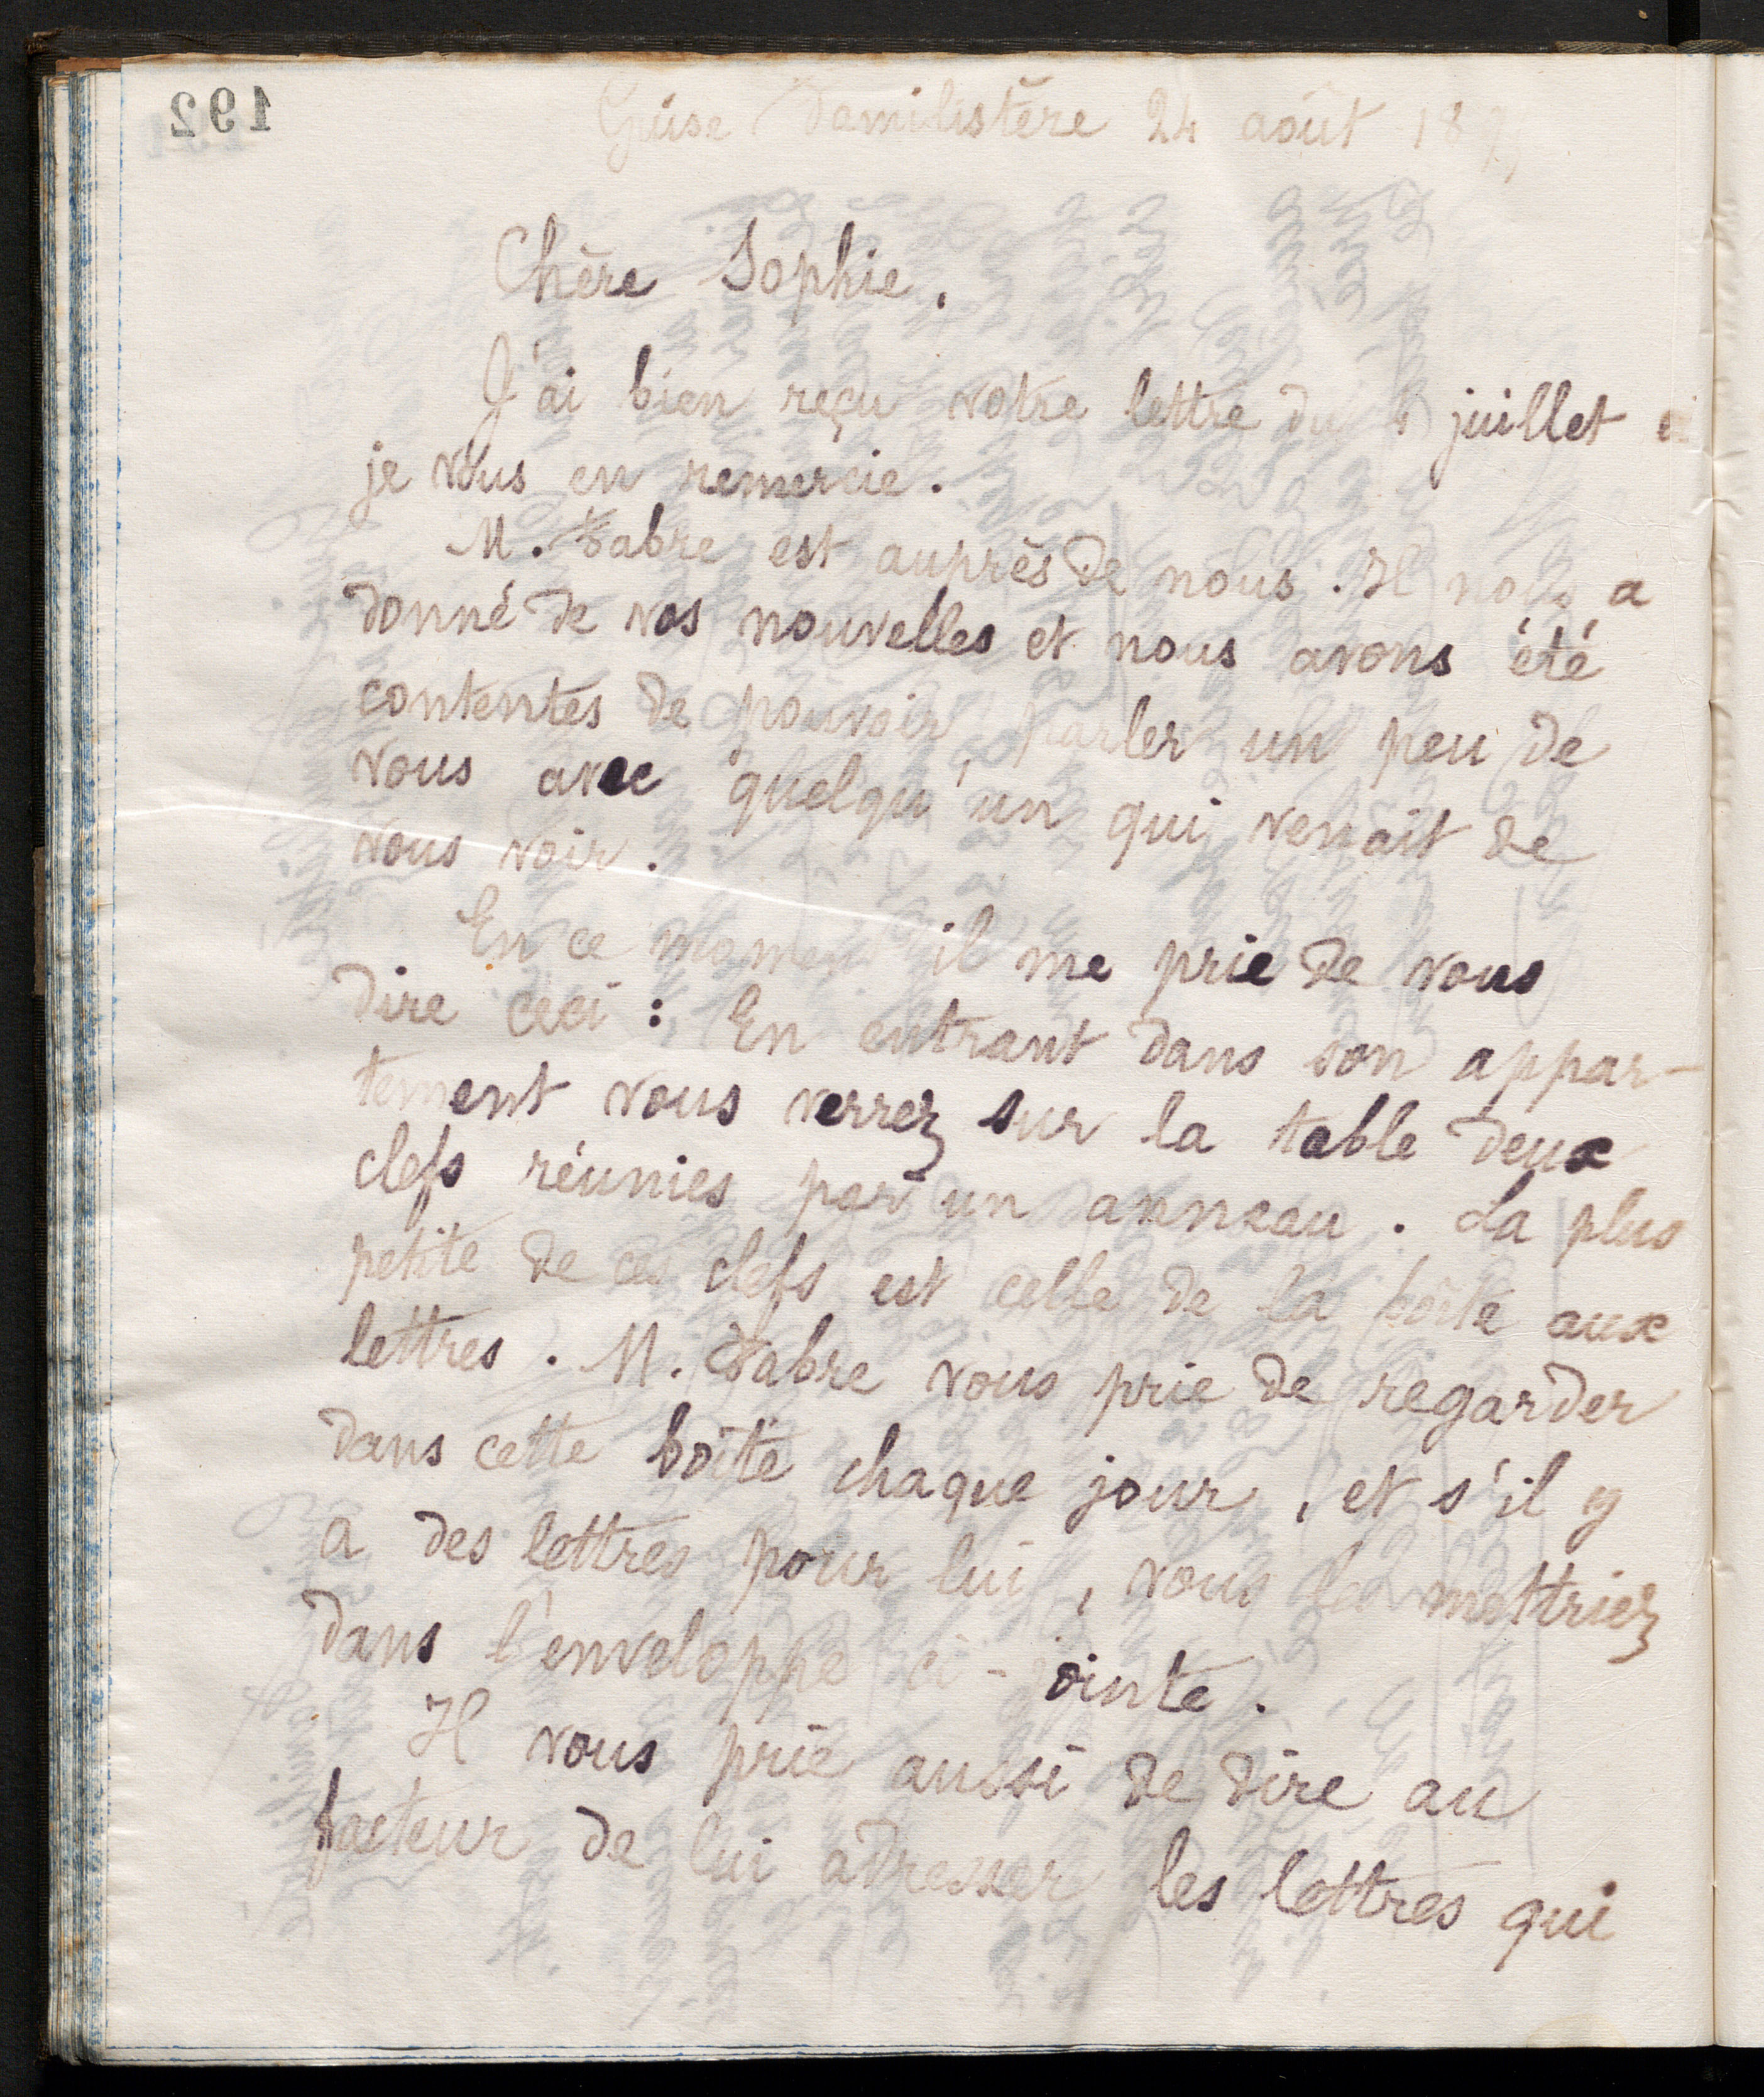 192
Guise Familistère 24 août 18
Chère Sophie,
J'ai bien reçu votre lettre du juillet et
je vous en remercie.
M. Fabre est auprès de nous. Il nous a
donné de vos nouvelles et nous avons été
contentes de pouvoir parler un peu de
vous avec quelqu'un qui venait de
vous voir.
En ce moment il me prie de vous
dire ceci : En entrant dans son appar-
tement vous verrez sur la table deux
clefs réunies par un anneau. La plus
petite de ces clefs est celle de la boîte aux
lettres. M. Fabre vous prie de regarder
dans cette boîte chaque jour, et s'il y
a des lettres pour lui, vous les mettriez
dans l'enveloppe ci-jointe.
Il vous prie aussi de dire au
facteur de lui adresser les lettres qui